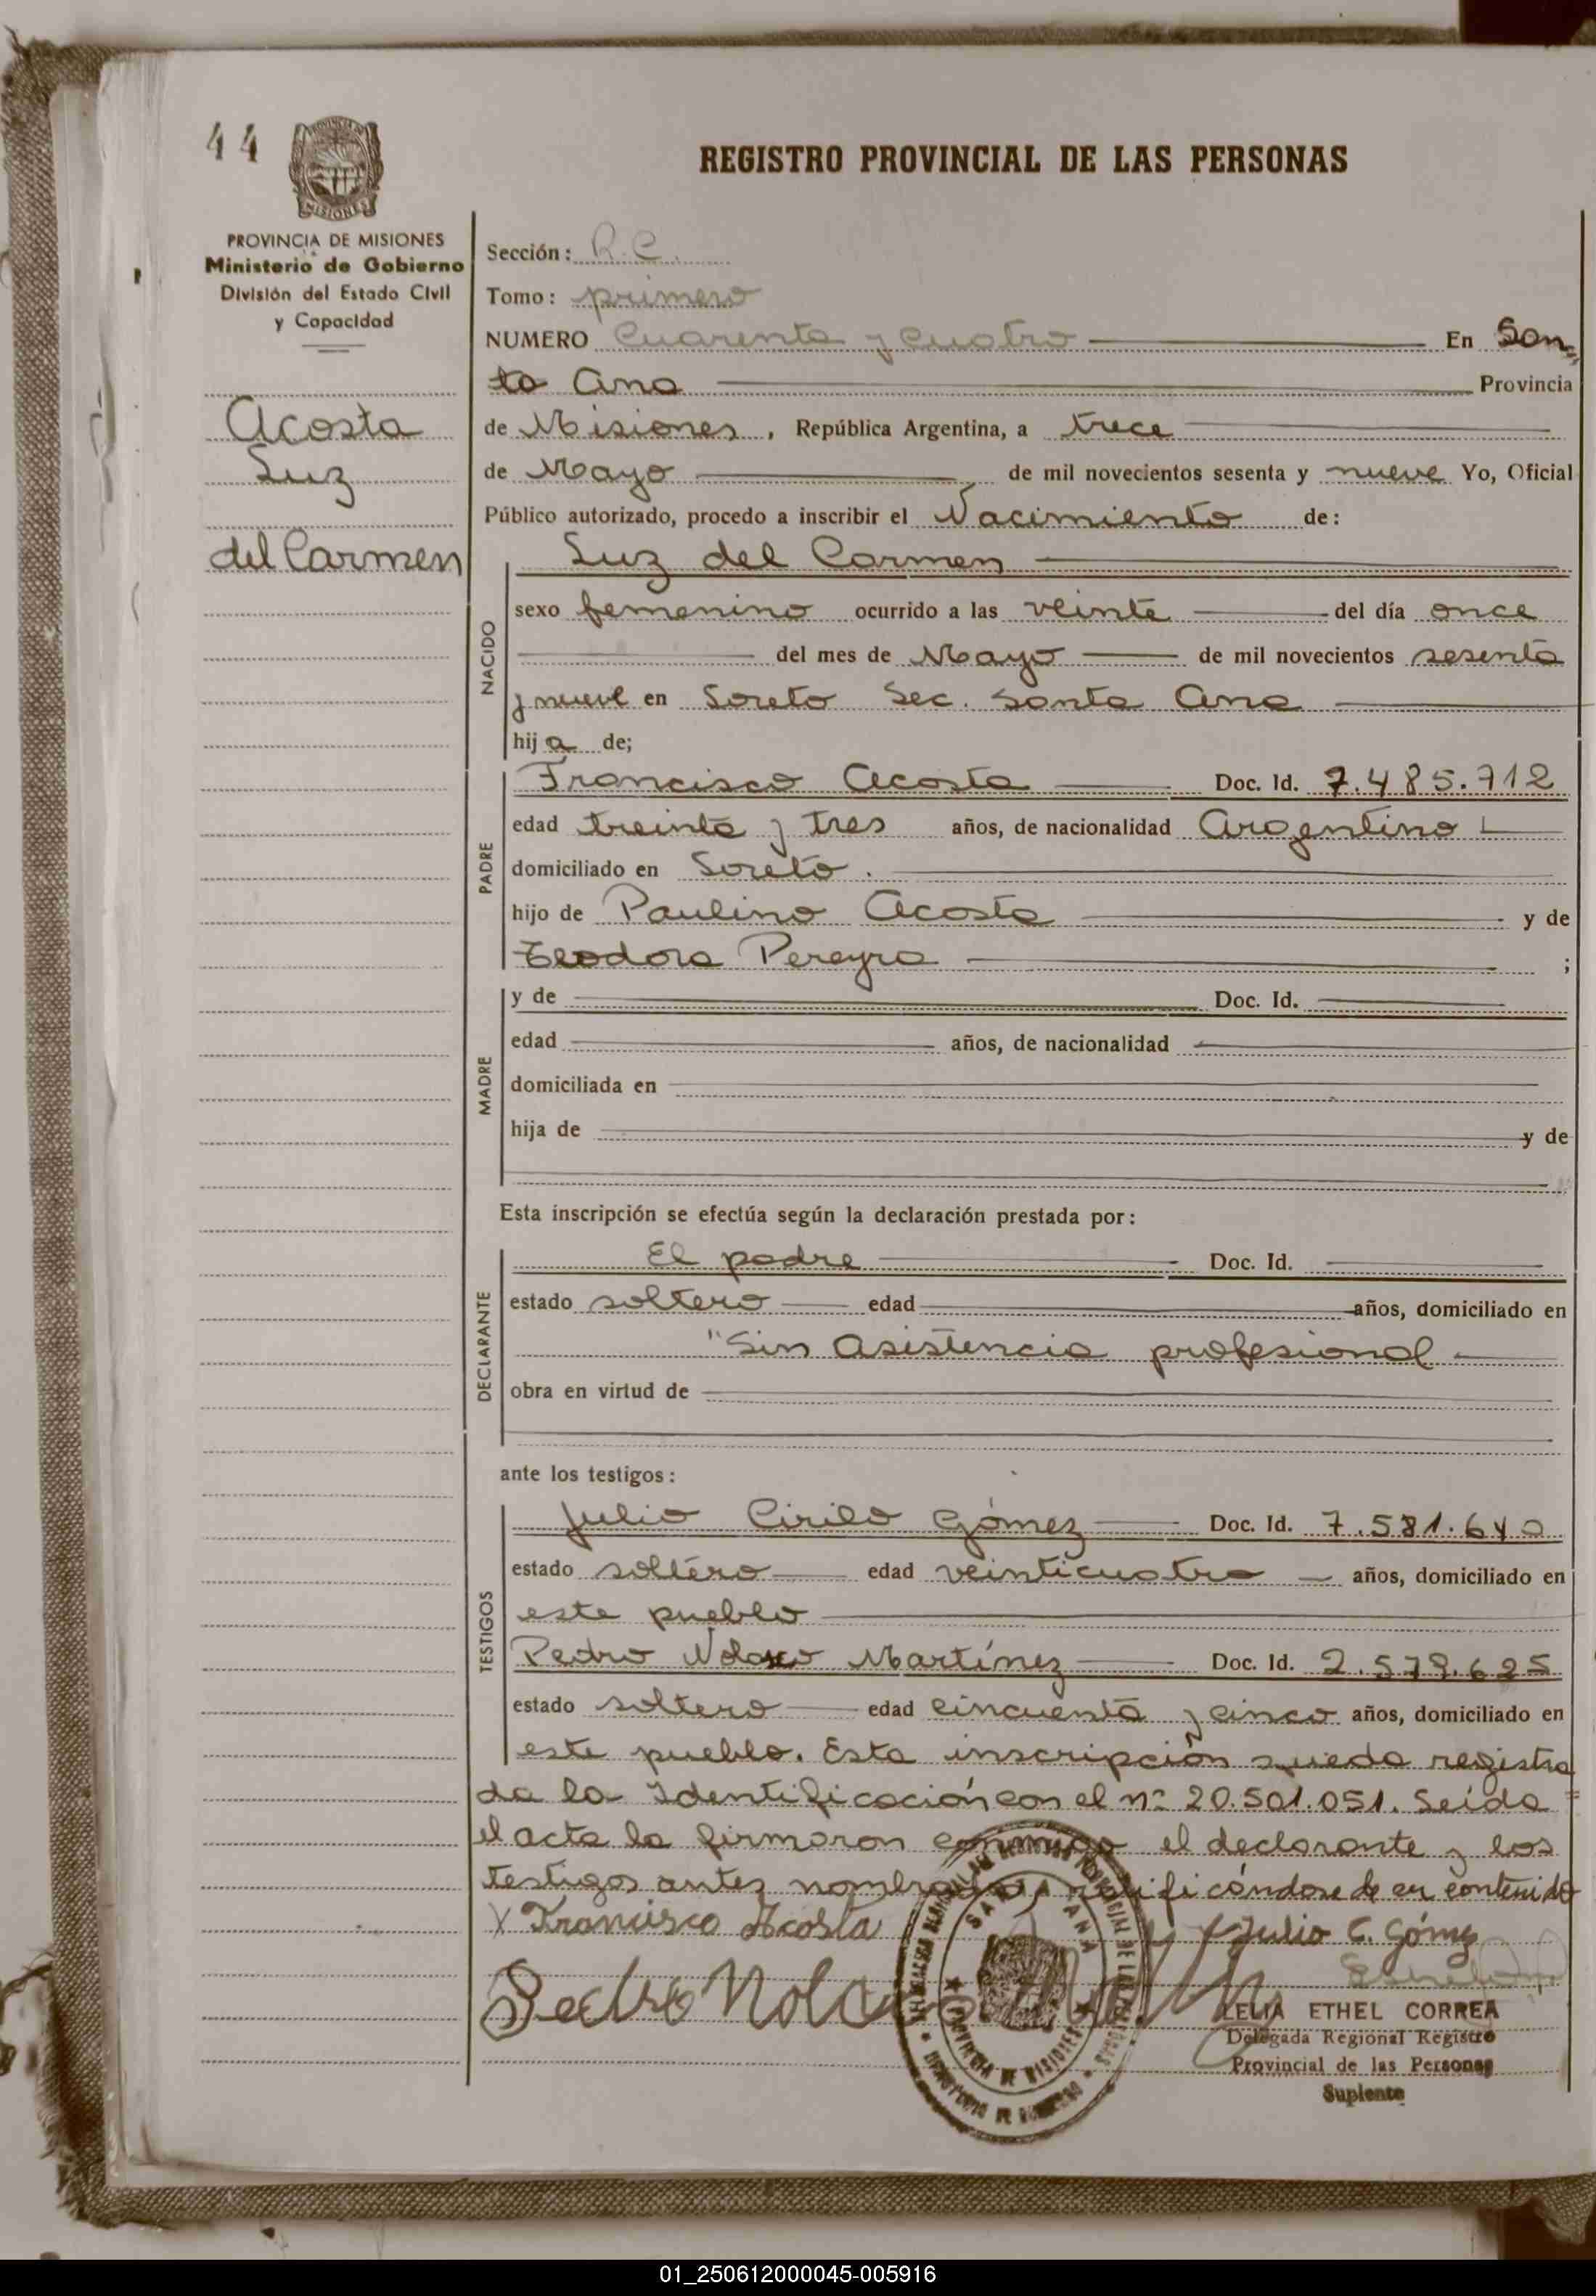 44
PROVINCIA DE MISIONES
Ministerio de Gobierno
División del Estado Civil
y Capacidad
Acosta
Luz
del Carmen
REGISTRO PROVINCIAL DE LAS PERSONAS
Sección: R.C.
Tomo: primero
NUMERO Cuarenta y cuatro En San=
ta Ana Provincia
de Misiones, República Argentina, a trece
de Mayo de mil novecientos sesenta y nueve Yo, Oficial
Público autorizado, procedo a inscribir el Nacimiento de:
NACIDO
Luz del Carmen
sexo femenino ocurrido a las veinte del día once
del mes de Mayo de mil novecientos sesenta
y nueve en Loreto Sec. Santa Ana
hija de;
PADRE
Francisco Acosta Doc. Id. 7.485.712
edad treinta y tres años, de nacionalidad Argentino
domiciliado en Loreto.
hijo de Paulino Acosta y de
Teodora Pereyra ;
MADRE
y de Doc. Id.
edad años, de nacionalidad
domiciliada en
hija de y de
Esta inscripción se efectúa según la declaración prestada por:
DECLARANTE
El padre Doc. Id.
estado soltero edad años, domiciliado en
"Sin Asistencia profesional
obra en virtud de
ante los testigos:
TESTIGOS
Julio Cirilo Gómez Doc. Id. 7.581.640
estado soltero edad veinticuatro años, domiciliado en
este pueblo
Pedro Nolasco Martínez Doc. Id. 2.579.625
estado soltero edad cincuenta y cinco años, domiciliado en
este pueblo. Esta inscripción queda registra
da la Identificación con el nº 20.501.051. Leída
el acta la firmaron conmigo el declarante y los
testigos antes nombrados, ratificándose de su contenido
X Francisco Acosta
Julio C. Gómez
Pedro Nolasco
SANTA ANA
PROVINCIA DE MISIONES
MINISTERIO DE GOBIERNO
LELIA ETHEL CORREA
Delegada Regional Registro
Provincial de las Personas
Suplente
01_250612000045-005916